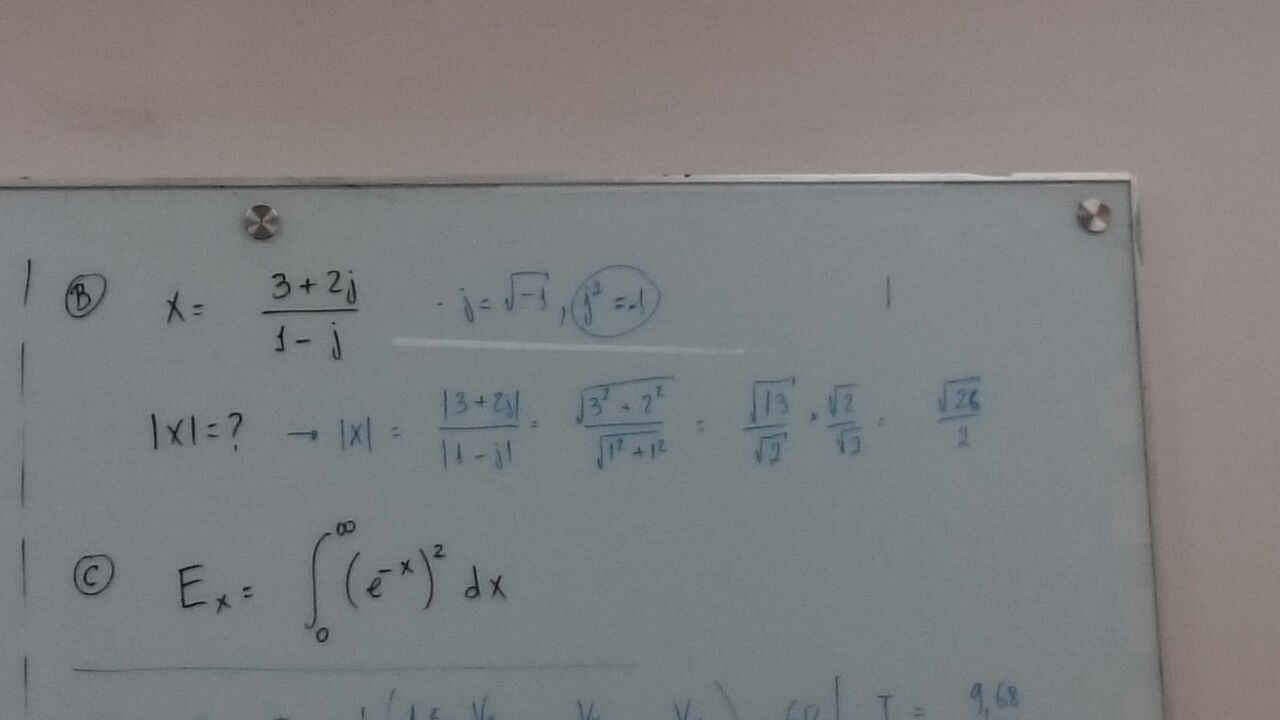 B x = (3+2j)/(1-j) · j = √-1, j² = -1
|x| = ? → |x| = |3+2j|/|1-j| = √(3²+2²)/√(1²+1²) = √13/√2 × √2/√2 = √26/2
C Eₓ = ∫₀^∞ (e^-x)² dx
I = 9,68